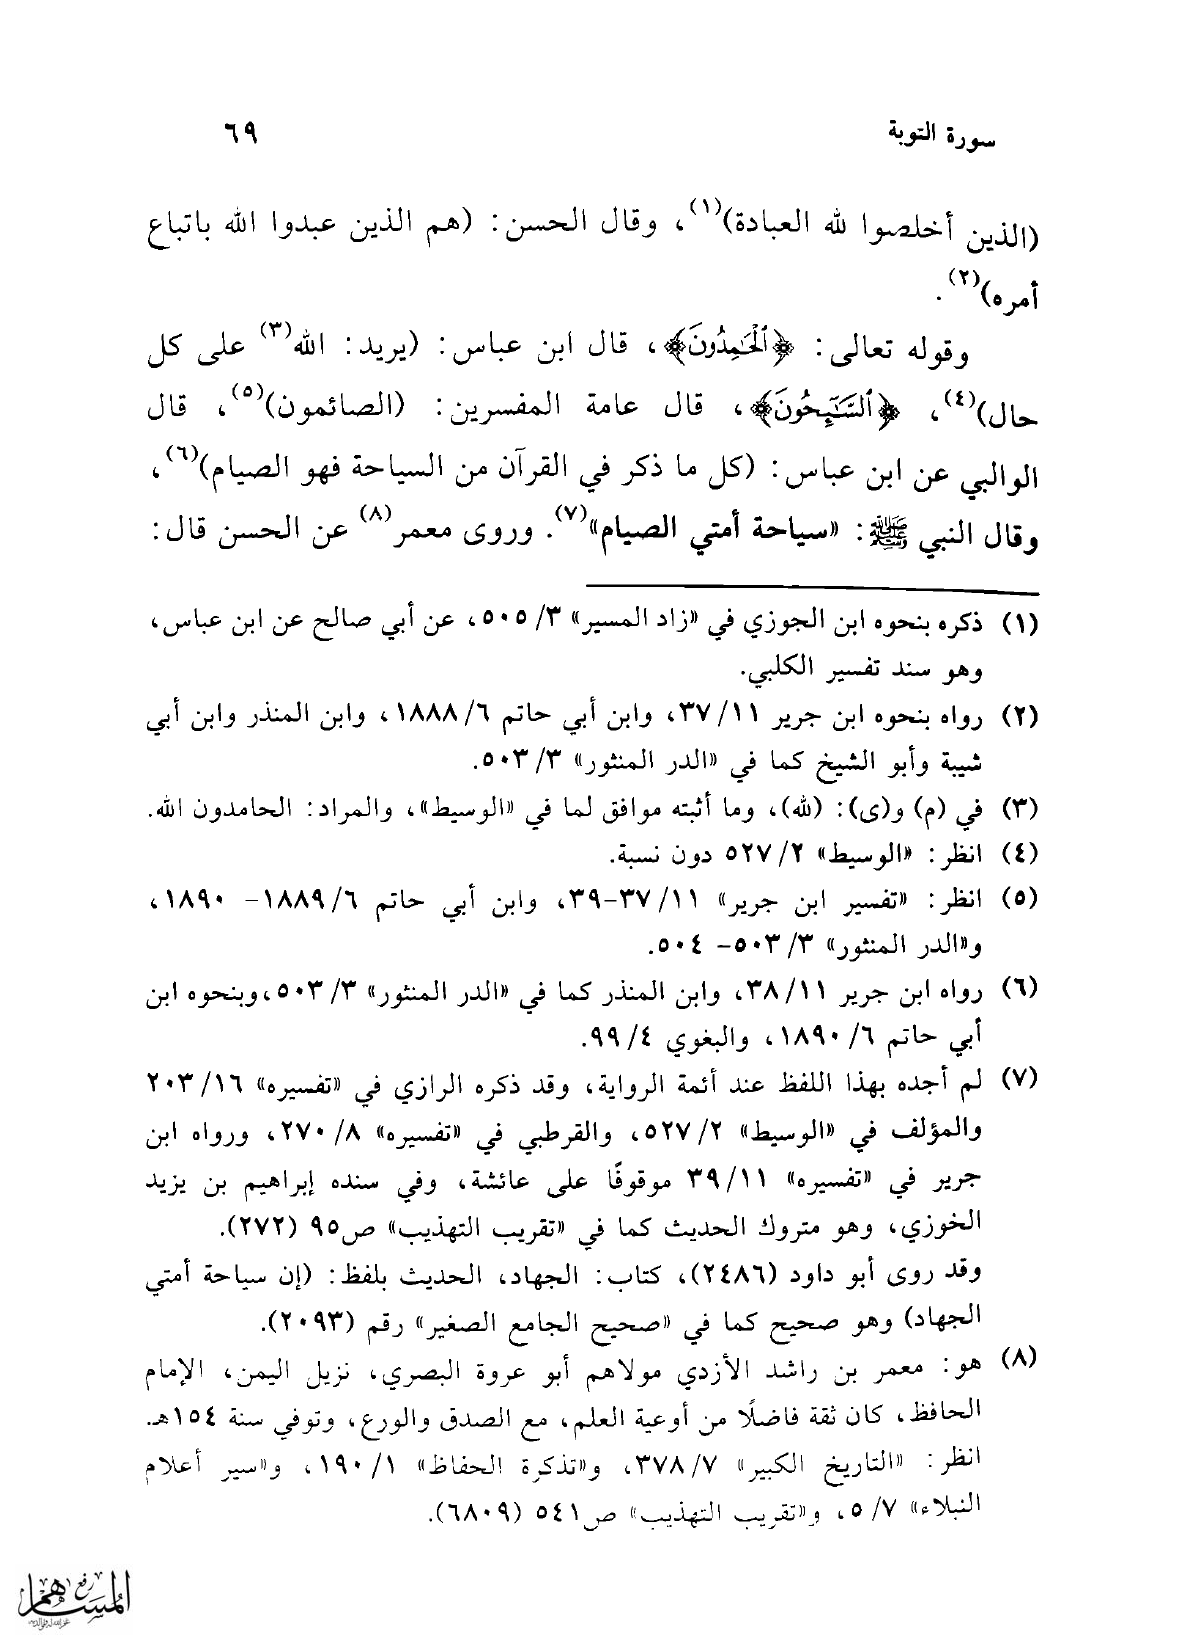 سورة التوبة
٦٩
(الذين أخلصوا لله العبادة)(١)، وقال الحسن: (هم الذين عبدوا الله باتباع
أمره)(٢).
وقوله تعالى: ﴿ٱلْحَٰمِدُونَ﴾، قال ابن عباس: (يريد: الله(٣) على كل
حال)(٤)، ﴿ٱلسَّٰٓئِحُونَ﴾، قال عامة المفسرين: (الصائمون)(٥)، قال
الوالبي عن ابن عباس: (كل ما ذكر في القرآن من السياحة فهو الصيام)(٦)،
وقال النبي ﷺ: «سياحة أمتي الصيام»(٧). وروى معمر(٨) عن الحسن قال:
(١) ذكره بنحوه ابن الجوزي في «زاد المسير» ٣/ ٥٠٥، عن أبي صالح عن ابن عباس،
وهو سند تفسير الكلبي.
(٢) رواه بنحوه ابن جرير ١١/ ٣٧، وابن أبي حاتم ٦/ ١٨٨٨، وابن المنذر وابن أبي
شيبة وأبو الشيخ كما في «الدر المنثور» ٣/ ٥٠٣.
(٣) في (م) و(ى): (لله)، وما أثبته موافق لما في «الوسيط»، والمراد: الحامدون الله.
(٤) انظر: «الوسيط» ٢/ ٥٢٧ دون نسبة.
(٥) انظر: «تفسير ابن جرير» ١١/ ٣٧-٣٩، وابن أبي حاتم ٦/ ١٨٨٩- ١٨٩٠،
و«الدر المنثور» ٣/ ٥٠٣- ٥٠٤.
(٦) رواه ابن جرير ١١/ ٣٨، وابن المنذر كما في «الدر المنثور» ٣/ ٥٠٣،وبنحوه ابن
أبي حاتم ٦/ ١٨٩٠، والبغوي ٤/ ٩٩.
(٧) لم أجده بهذا اللفظ عند أئمة الرواية، وقد ذكره الرازي في «تفسيره» ١٦/ ٢٠٣
والمؤلف في «الوسيط» ٢/ ٥٢٧، والقرطبي في «تفسيره» ٨/ ٢٧٠، ورواه ابن
جرير في «تفسيره» ١١/ ٣٩ موقوفًا على عائشة، وفي سنده إبراهيم بن يزيد
الخوزي، وهو متروك الحديث كما في «تقريب التهذيب» ص٩٥ (٢٧٢).
وقد روى أبو داود (٢٤٨٦)، كتاب: الجهاد، الحديث بلفظ: (إن سياحة أمتي
الجهاد) وهو صحيح كما في «صحيح الجامع الصغير» رقم (٢٠٩٣).
(٨) هو: معمر بن راشد الأزدي مولاهم أبو عروة البصري، نزيل اليمن، الإمام
الحافظ، كان ثقة فاضلًا من أوعية العلم، مع الصدق والورع، وتوفي سنة ١٥٤هـ.
انظر: «التاريخ الكبير» ٧/ ٣٧٨، و«تذكرة الحفاظ» ١/ ١٩٠، و«سير أعلام
النبلاء» ٧/ ٥، و«تقريب التهذيب» ص٥٤١ (٦٨٠٩).
رفع
المساهم